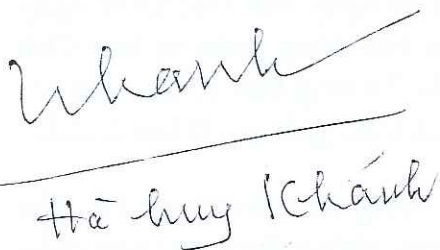 Khanh
Hà huy Khánh